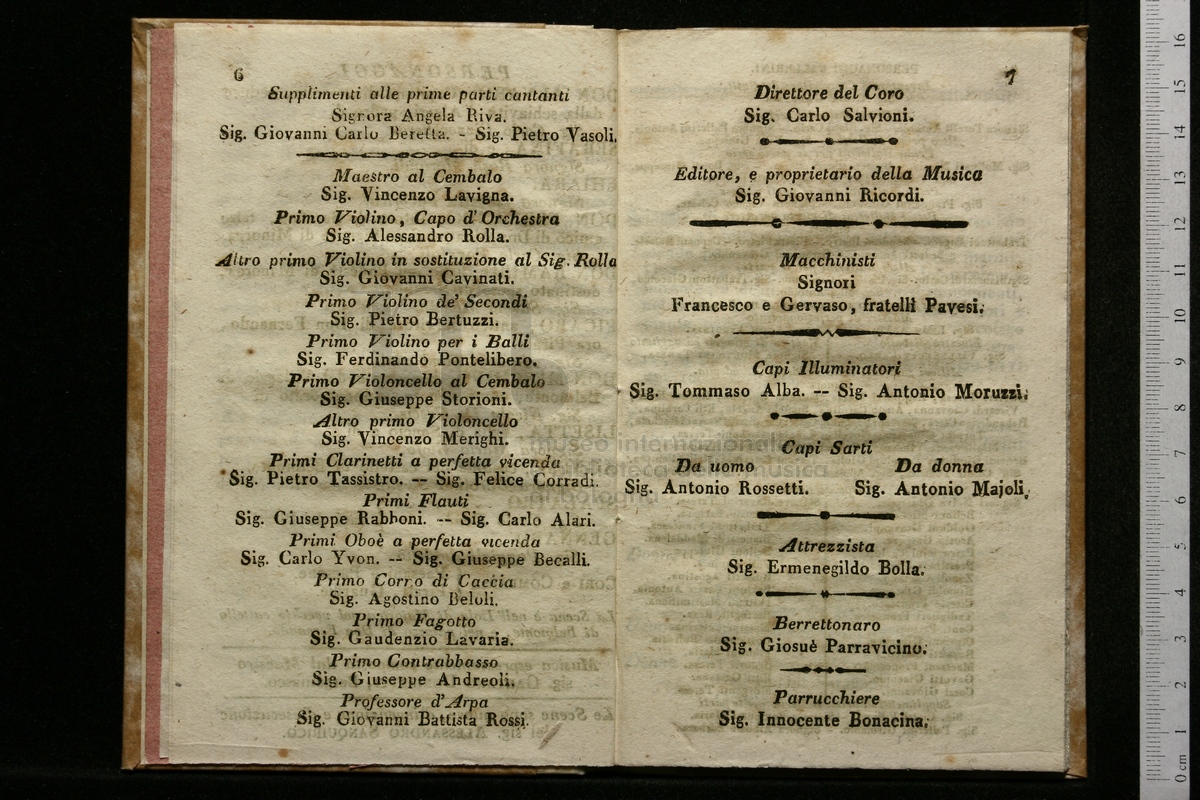 6
Supplimenti alle prime parti cantanti
Signora Angela Riva.
Sig. Giovanni Carlo Beretta. - Sig. Pietro Vasoli.
Maestro al Cembalo
Sig. Vincenzo Lavigna.
Primo Violino, Capo d'Orchestra
Sig. Alessandro Rolla.
Altro primo Violino in sostituzione al Sig. Rolla
Sig. Giovanni Cavinati.
Primo Violino de' Secondi
Sig. Pietro Bertuzzi.
Primo Violino per i Balli
Sig. Ferdinando Pontelibero.
Primo Violoncello al Cembalo
Sig. Giuseppe Storioni.
Altro primo Violoncello
Sig. Vincenzo Merighi.
Primi Clarinetti a perfetta vicenda
Sig. Pietro Tassistro. -- Sig. Felice Corradi.
Primi Flauti
Sig. Giuseppe Rabboni. -- Sig. Carlo Alari.
Primi Oboè a perfetta vicenda
Sig. Carlo Yvon. -- Sig. Giuseppe Becalli.
Primo Corno di Caccia
Sig. Agostino Beloli.
Primo Fagotto
Sig. Gaudenzio Lavaria.
Primo Contrabbasso
Sig. Giuseppe Andreoli.
Professore d'Arpa
Sig. Giovanni Battista Rossi.
7
Direttore del Coro
Sig. Carlo Salvioni.
Editore, e proprietario della Musica
Sig. Giovanni Ricordi.
Macchinisti
Signori
Francesco e Gervaso, fratelli Pavesi.
Capi Illuminatori
Sig. Tommaso Alba. -- Sig. Antonio Moruzzi.
Capi Sarti
Da uomo Da donna
Sig. Antonio Rossetti. Sig. Antonio Majoli.
Attrezzista
Sig. Ermenegildo Bolla.
Berrettonaro
Sig. Giosuè Parravicino.
Parrucchiere
Sig. Innocente Bonacina.
museo internazionale
biblioteca della musica
di bologna
0 cm 1 2 3 4 5 6 7 8 9 10 11 12 13 14 15 16